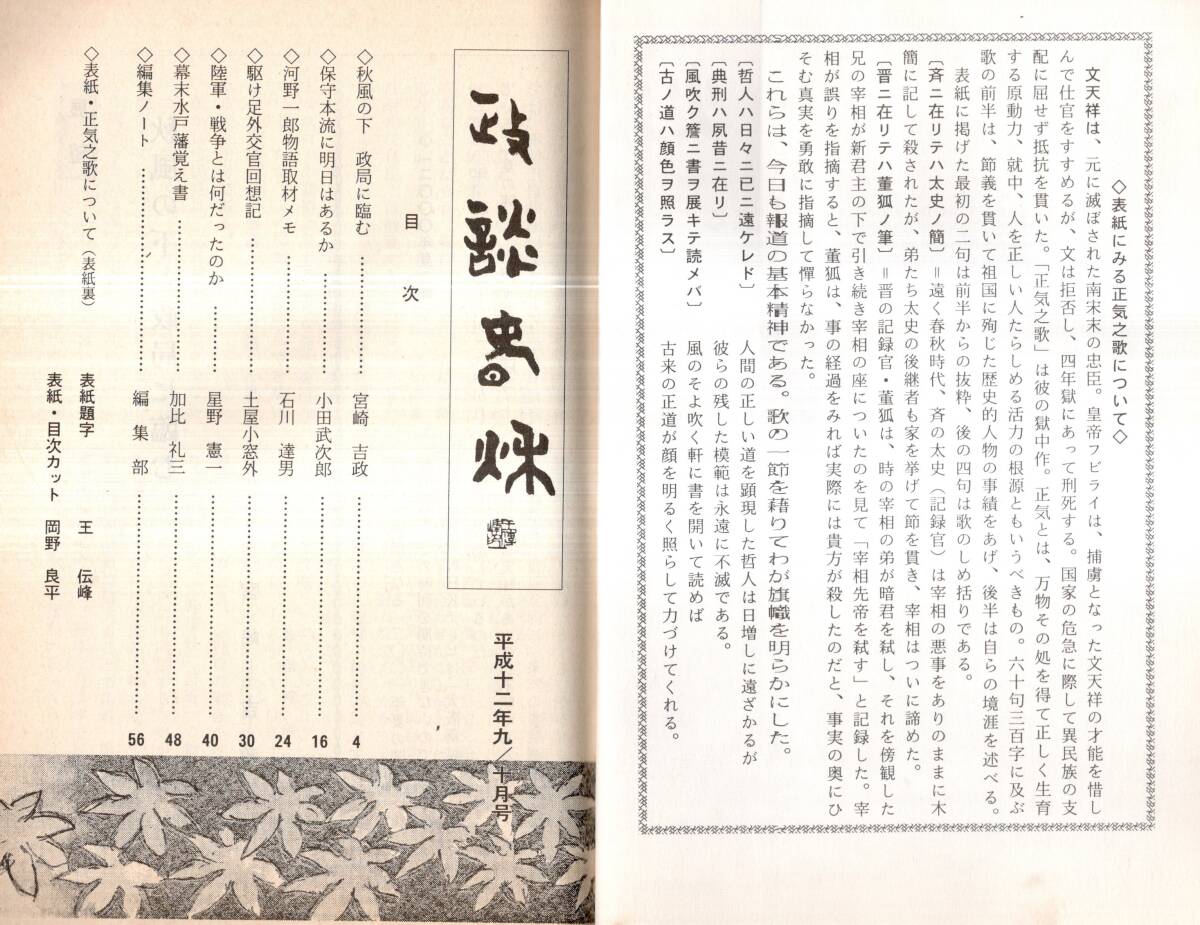 ◇表紙にみる正気之歌について◇
文天祥は、元に滅ぼされた南宋末の忠臣。皇帝フビライは、捕虜となった文天祥の才能を惜し
んで仕官をすすめるが、文は拒否し、四年獄にあって刑死する。国家の危急に際して異民族の支
配に屈せず抵抗を貫いた。「正気之歌」は彼の獄中作。正気とは、万物その処を得て正しく生育
する原動力、就中、人を正しい人たらしめる活力の根源ともいうべきもの。六十句三百字に及ぶ
歌の前半は、節義を貫いて祖国に殉じた歴史的人物の事績をあげ、後半は自らの境涯を述べる。
表紙に掲げた最初の二句は前半からの抜粋、後の四句は歌のしめ括りである。
〔斉ニ在リテハ太史ノ簡〕=遠く春秋時代、斉の太史(記録官)は宰相の悪事をありのままに木
簡に記して殺されたが、弟たち太史の後継者も家を挙げて節を貫き、宰相はついに諦めた。
〔晋ニ在リテハ董狐ノ筆〕=晋の記録官・董狐は、時の宰相の弟が暗君を弑し、それを傍観した
兄の宰相が新君主の下で引き続き宰相の座についたのを見て「宰相先帝を弑す」と記録した。宰
相が誤りを指摘すると、董狐は、事の経過をみれば実際には貴方が殺したのだと、事実の奥にひ
そむ真実を勇敢に指摘して憚らなかった。
これらは、今日も報道の基本精神である。歌の一節を藉りてわが旗幟を明らかにした。
〔哲人ハ日々ニ已ニ遠ケレド〕 人間の正しい道を顕現した哲人は日増しに遠ざかるが
〔典刑ハ夙昔ニ在リ〕 彼らの残した模範は永遠に不滅である。
〔風吹ク簷ニ書ヲ展キテ読メバ〕 風のそよ吹く軒に書を開いて読めば
〔古ノ道ハ顔色ヲ照ラス〕 古来の正道が顔を明るく照らして力づけてくれる。
政談春秋
平成十二年九/十月号
目次
◇秋風の下 政局に臨む ………… 宮崎 吉政 ………… 4
◇保守本流に明日はあるか ………… 小田武次郎 ………… 16
◇河野一郎物語取材メモ ………… 石川 達男 ………… 24
◇駆け足外交官回想記 ………… 土屋小窓外 ………… 30
◇陸軍・戦争とは何だったのか ………… 星野 憲一 ………… 40
◇幕末水戸藩覚え書 ………… 加比 礼三 ………… 48
◇編集ノート ………… 編集部 ………… 56
◇表紙・正気之歌について(表紙裏)
表紙題字 王 伝峰
表紙・目次カット 岡野 良平